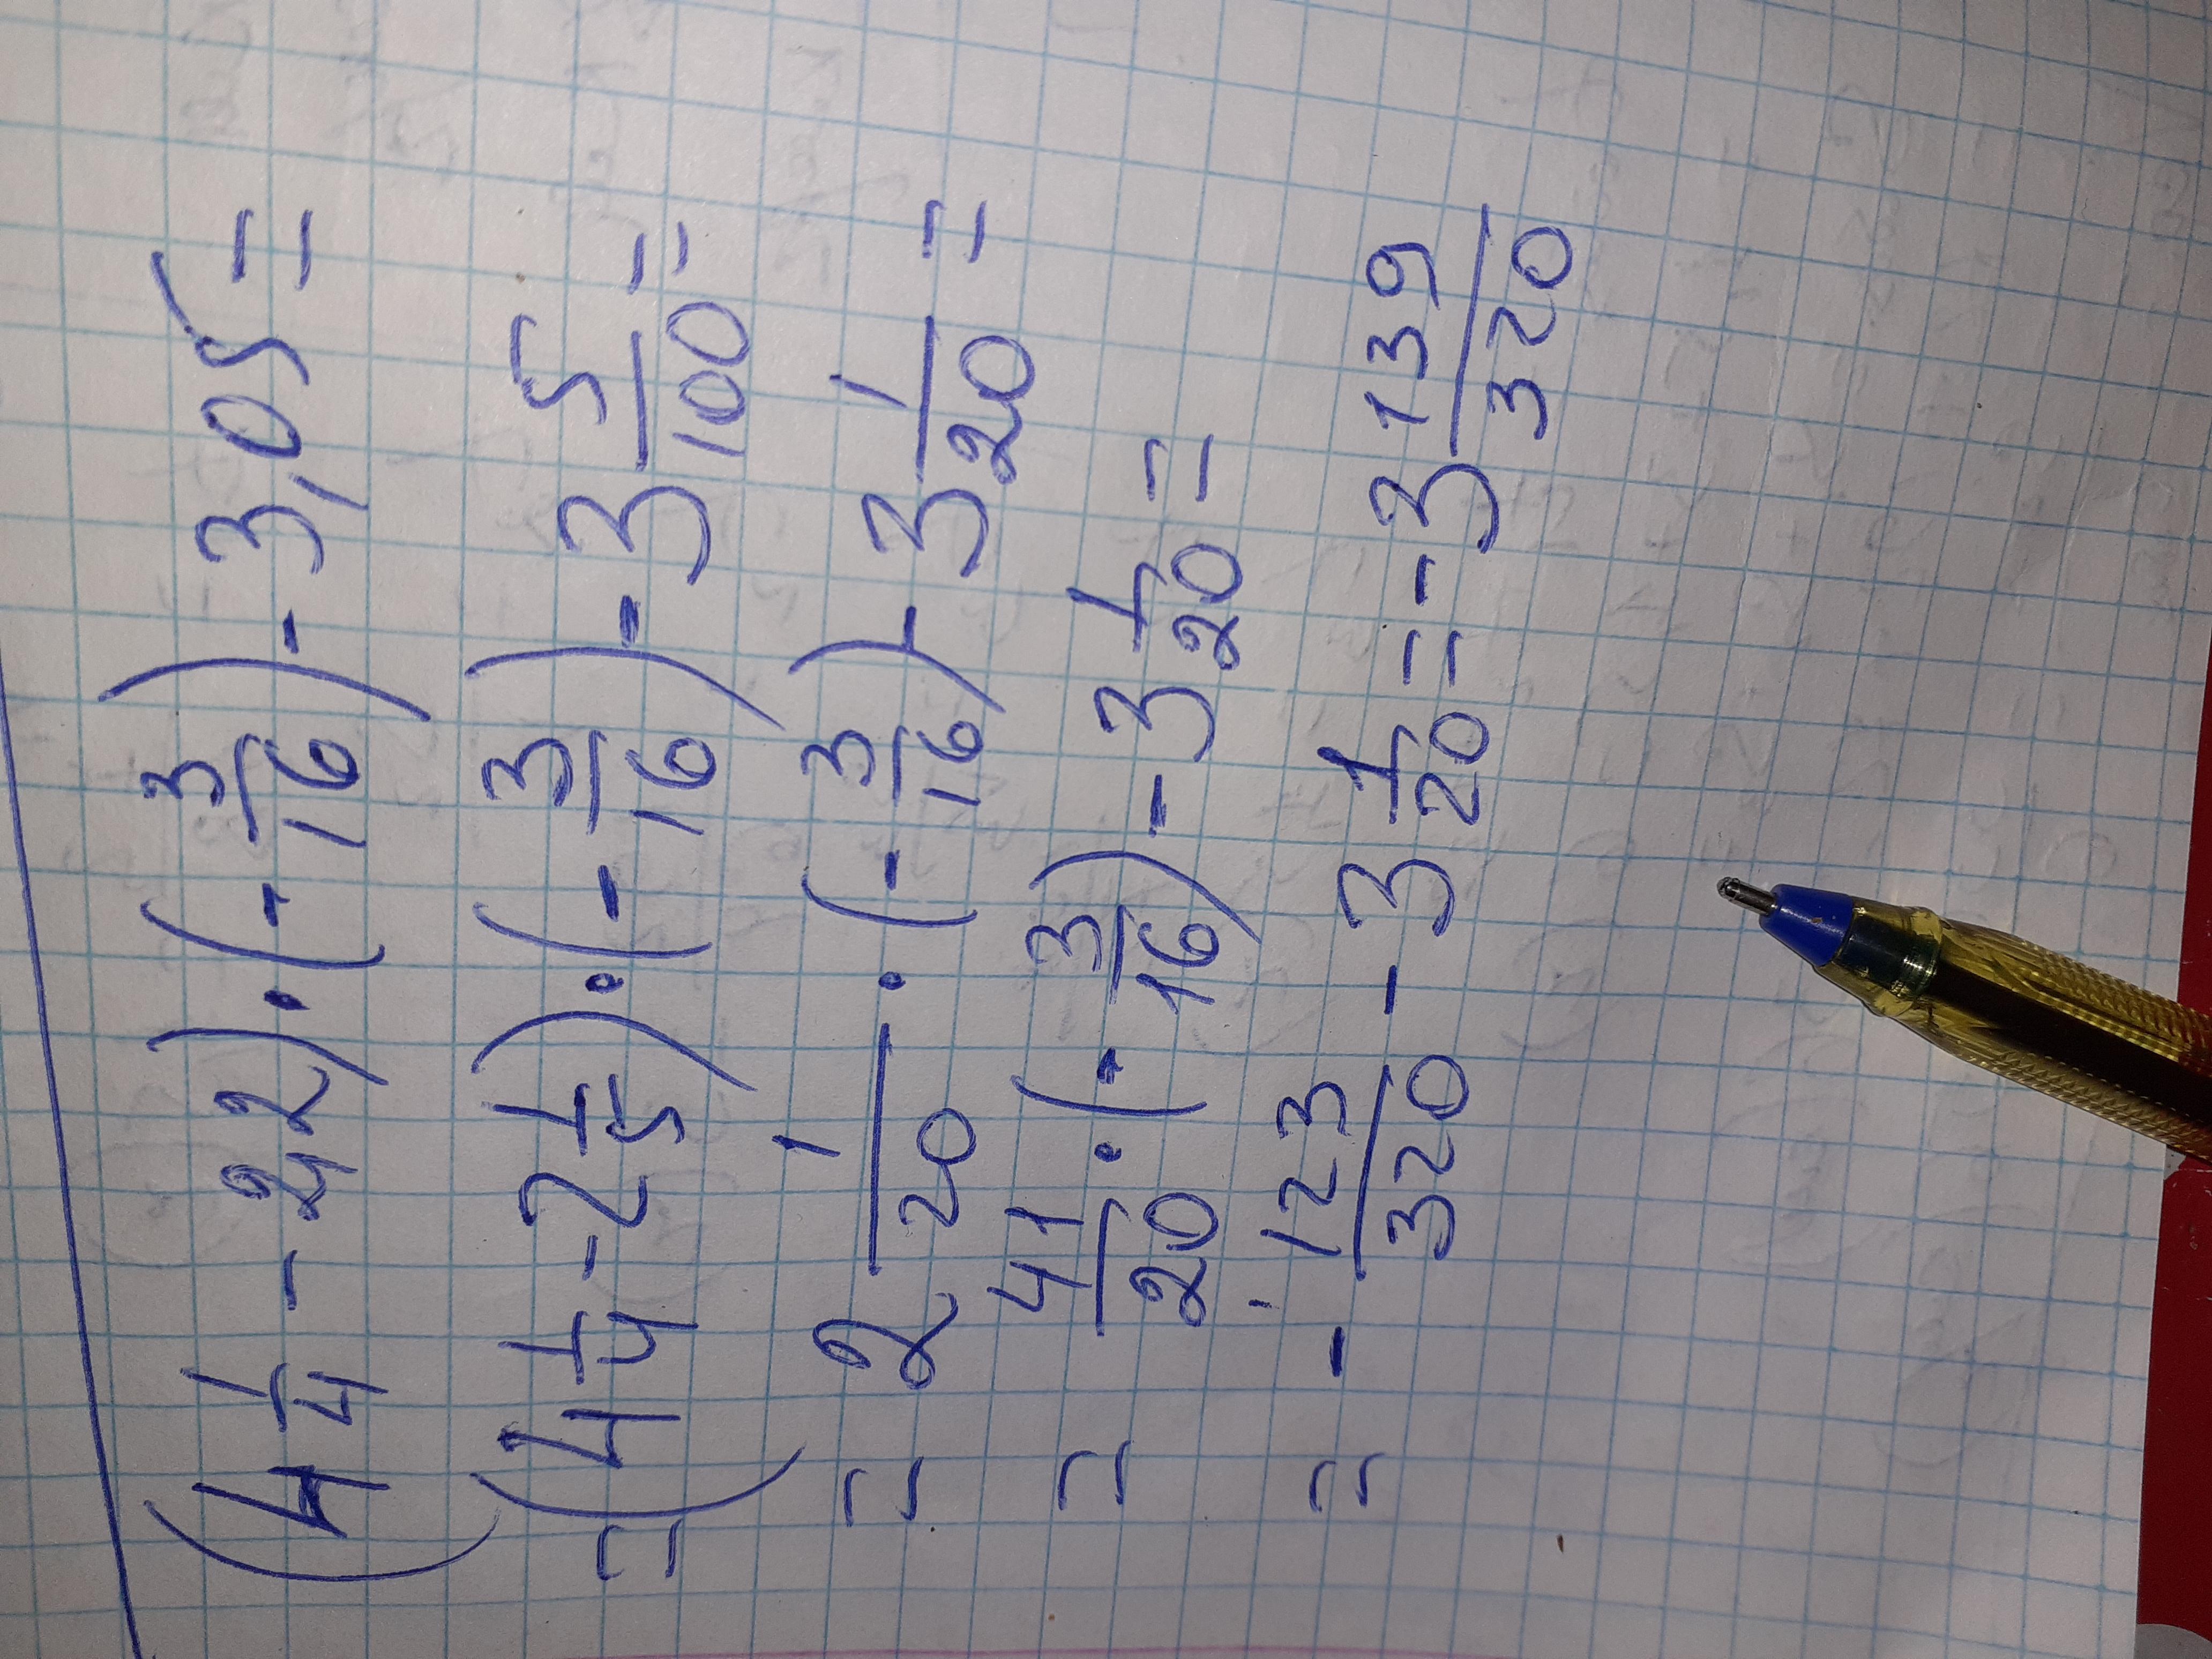 (4 1/4 - 2,2) · (- 3/16) - 3,05 =
= (4 1/4 - 2 1/5) · (- 3/16) - 3 5/100 =
= 2 1/20 · (- 3/16) - 3 1/20 =
= 41/20 · (- 3/16) - 3 1/20 =
= - 123/320 - 3 1/20 = - 3 139/320